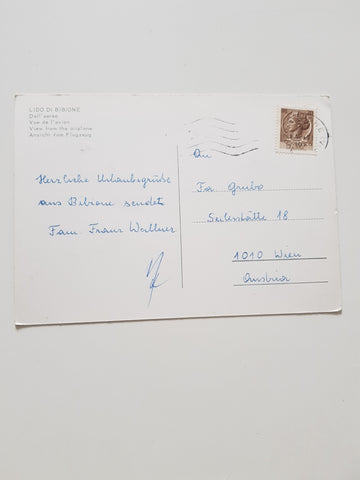 LIDO DI BIBIONE
Dall'aereo
Vue de l'avion
View from the airplane
Ansicht vom Flugzeug
Herzliche Urlaubsgrüße
aus Bibione sendet
Fam. Franz Wallner
An
Fa. Grube
Seilerstätte 18
1010 Wien
Austria